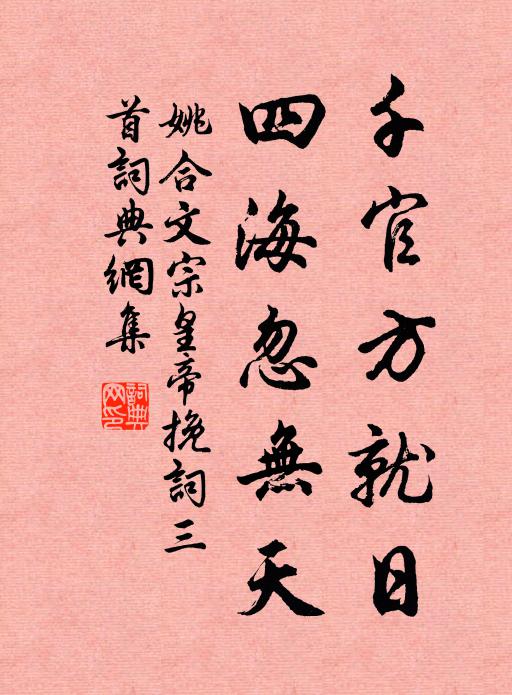 千官方就日
四海忽無天
姚合文宗皇帝挽詞三
首詞典網集
詞典
网印